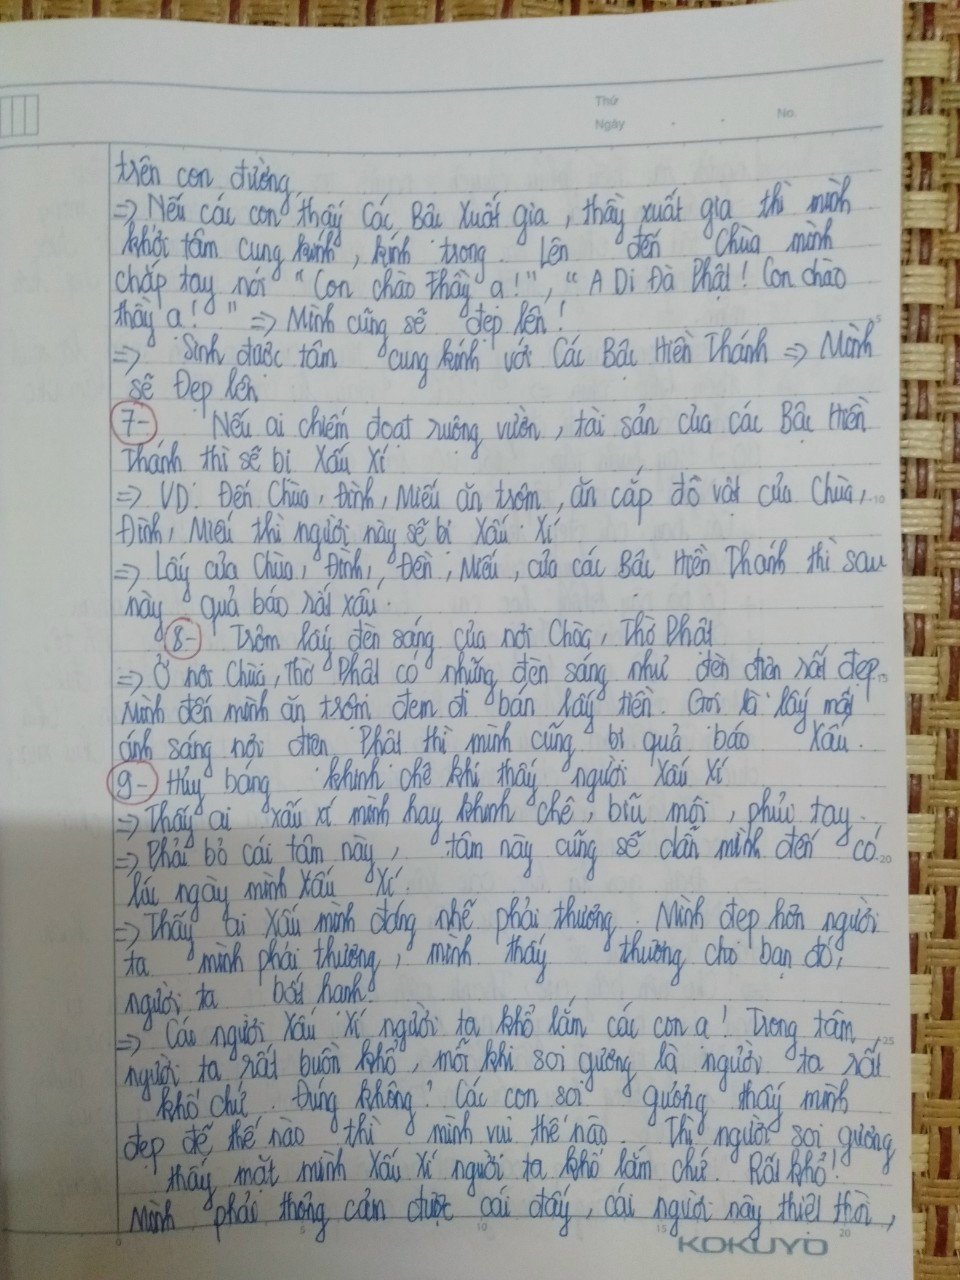 Thứ
Ngày . . No.
trên con đường
=> Nếu các con thấy Các Bậc Xuất gia, thầy xuất gia thì mình
khởi tâm cung kính, kính trọng. Lên đến Chùa mình
chắp tay nói "Con chào Thầy ạ!", "A Di Đà Phật! Con chào
thầy ạ!" => Mình cũng sẽ đẹp lên!
=> Sinh được tâm cung kính với Các Bậc Hiền Thánh => Mình
sẽ Đẹp lên.
7- Nếu ai chiếm đoạt ruộng vườn, tài sản của các Bậc Hiền
Thánh thì sẽ bị Xấu Xí
=> VD: Đến Chùa, Đình, Miếu ăn trộm, ăn cắp đồ vật của Chùa,
Đình, Miếu thì người này sẽ bị Xấu Xí
=> Lấy của Chùa, Đình, Đền, Miếu, của các Bậc Hiền Thánh thì sau
này quả báo rất xấu
8- Trộm lấy đèn sáng của nơi Chùa, Thờ Phật
=> Ở nơi Chùa, Thờ Phật có những đèn sáng như đèn điện rất đẹp
Mình đến mình ăn trộm đem đi bán lấy tiền. Gọi là lấy mất
ánh sáng nơi điện Phật thì mình cũng bị quả báo Xấu.
9- Hủy báng khinh chê khi thấy người Xấu Xí
=> Thấy ai xấu xí mình hay khinh chê, bĩu môi, phủi tay.
=> Phải bỏ cái tâm này, tâm này cũng sẽ dẫn mình đến có
lúc ngày mình Xấu Xí.
=> Thấy ai Xấu mình đáng nhẽ phải thương. Mình đẹp hơn người
ta mình phải thương, mình thấy thương cho bạn đó,
người ta bất hạnh.
=> Các người Xấu Xí người ta khổ lắm các con ạ! Trong tâm
người ta rất buồn khổ, mỗi khi soi gương là người ta rất
khổ chứ. Đúng không! Các con soi gương thấy mình
đẹp đẽ thế nào thì mình vui thế nào. Thì người soi gương
thấy mặt mình Xấu Xí người ta khổ lắm chứ. Rất khổ!
Mình phải thông cảm được cái đấy, cái người này thiệt thòi,
KOKUYO